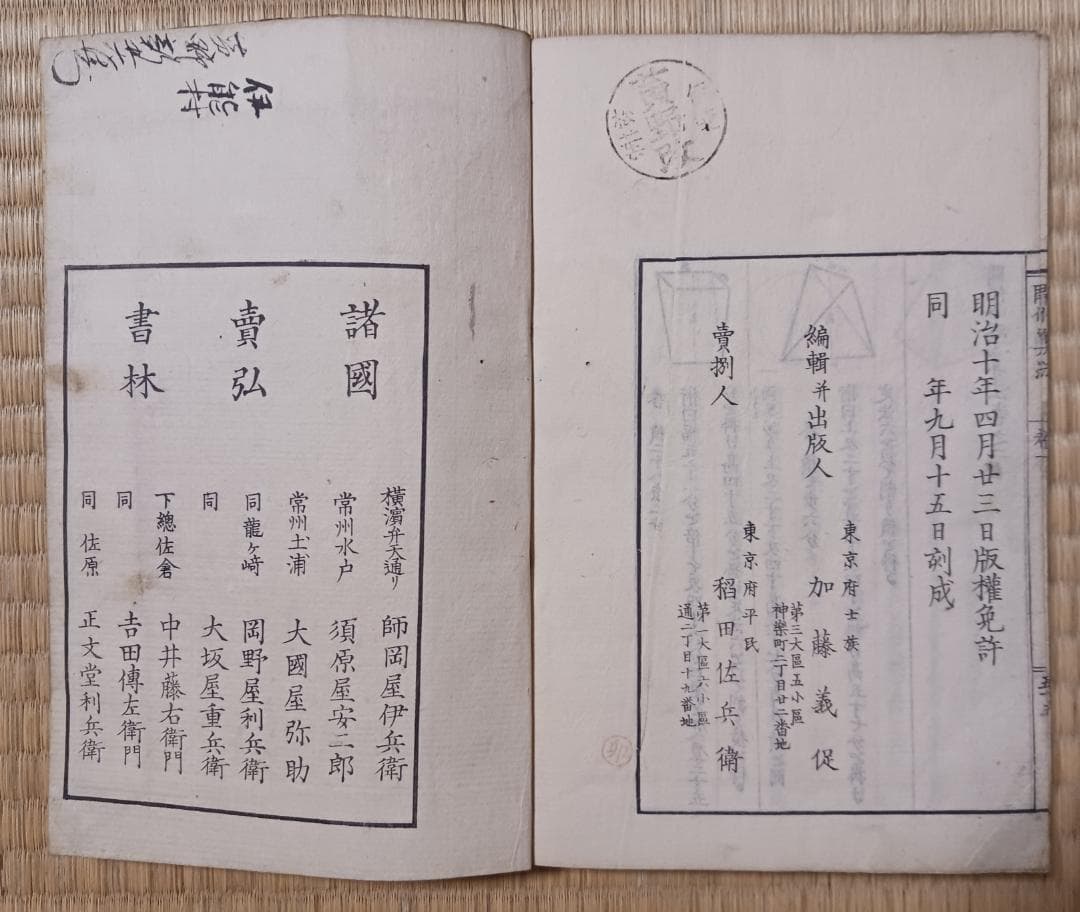 明治十年四月廿三日版權免許
同　年九月十五日刻成
編輯并出版人
東京府士族
加藤義促
第三大區五小區
神樂町二丁目廿二番地
賣捌人
東京府平民
稻田佐兵衛
第一大區六小區
通二丁目十九番地
伊能村
諸國
賣弘
書林
橫濱弁天通リ　師岡屋伊兵衛
常州水戸　須原屋安二郎
常州土浦　大國屋弥助
同龍ヶ﨑　岡野屋利兵衛
同　大坂屋重兵衛
下總佐倉　中井藤右衛門
同　吉田傳左衛門
同佐原　正文堂利兵衛